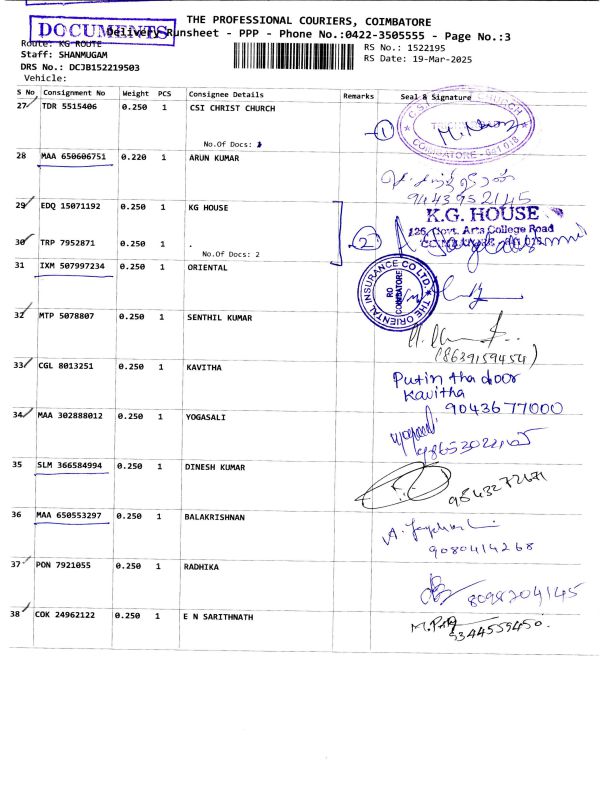 THE PROFESSIONAL COURIERS, COIMBATORE
DOCUMENTS
Delivery Runsheet - PPP - Phone No.:0422-3505555 - Page No.:3
Route: KG ROUTE
RS No.: 1522195
Staff: SHANMUGAM
RS Date: 19-Mar-2025
DRS No.: DCJB152219503
Vehicle:
S No Consignment No Weight PCS Consignee Details Remarks Seal & Signature
27 TDR 5515406 0.250 1 CSI CHRIST CHURCH
No.Of Docs:
1
COIMBATORE - 641 018
28 MAA 650606751 0.220 1 ARUN KUMAR
9443952145
29 EDQ 15071192 0.250 1 KG HOUSE
K.G. HOUSE
126, Govt. Arts College Road
2
30 TRP 7952871 0.250 1 .
No.Of Docs: 2
31 IXM 507997234 0.250 1 ORIENTAL
THE ORIENTAL INSURANCE CO LTD.
RO
COIMBATORE
32 MTP 5078807 0.250 1 SENTHIL KUMAR
(8639159454)
33 CGL 8013251 0.250 1 KAVITHA
Putin tha door
Kavitha
9043677000
34 MAA 302888012 0.250 1 YOGASALI
35 SLM 366584994 0.250 1 DINESH KUMAR
9843272671
36 MAA 650553297 0.250 1 BALAKRISHNAN
9080414268
37 PON 7921055 0.250 1 RADHIKA
8098204145
38 COK 24962122 0.250 1 E N SARITHNATH
9344559450.